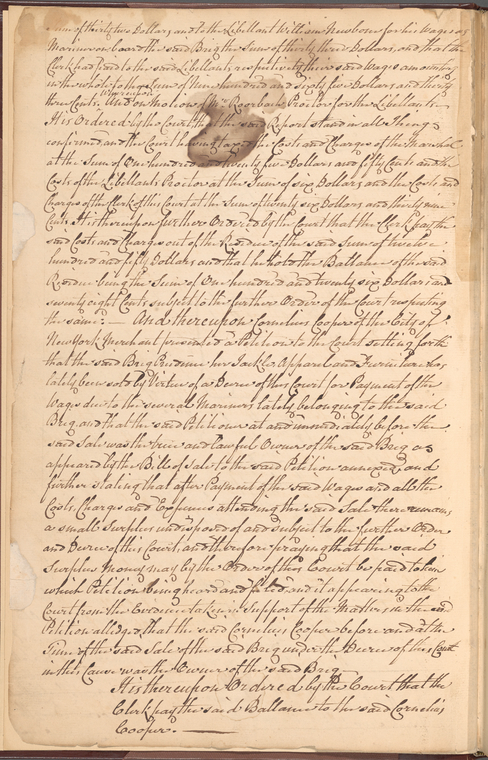 Sum of thirty two Dollars, and to the Libellant William Newbone for his Wages as
Mariner on board the said Brig the Sum of thirty three Dollars, and that the
Clerk had paid to the said Libellants respectively their said Wages amounting
in the whole to the Sum of Nine hundred and sixty five Dollars and thirty
three Cents. And whereupon on the motion of Mr. Roorback Proctor for the Libellants
It is Ordered by the Court that the said Report stand in all Things
confirmed, and the Court having taxed the Costs and Charges of the Marshal
at the Sum of One hundred and twenty five Dollars and fifty Cents and the
Costs of the Libellants Proctor at the Sum of six Dollars, and the Costs and
Charges of the Clerk of this Court at the Sum of twenty six Dollars and thirty nine
Cents. It is thereupon further Ordered by the Court that the Clerk pay the
said Costs and Charges out of the Residue of the said Sum of twelve
hundred and fifty Dollars, and that he hold the Ballance of the said
Residue being the Sum of One hundred and twenty six Dollars and
seventy eight Cents subject to the further Order of the Court respecting
the same. — And thereupon Cornelius Cooper of the City of
New York Merchant presented a Petition to the Court setting forth
that the said Brig Prudence her Tackle Apparel and Furniture has
lately been sold by Virtue of a Decree of this Court for Payment of the
Wages due to the several Mariners lately belonging to the said
Brig, and that the said Petitioner at and immediately before the
said Sale was the true and lawful Owner of the said Brig as
appeared by the Bill of Sale to the said Petition annexed, and
further stating that after Payment of the said Wages and all the
Costs Charges and Expences attending the said Sale there remains
a small Surplus undisposed of and subject to the further Order
and Decree of this Court, and therefore praying that the said
Surplus Money may by the Order of this Court be paid to him
which Petition being heard and filed and it appearing to the
Court from the Evidence taken in Support of the Matters in the said
Petition alledged, that the said Cornelius Cooper before and at the
Time of the said Sale of the said Brig under the Decree of this Court
in this Cause was the Owner of the said Brig
It is thereupon Ordered by the Court that the
Clerk pay the said Ballance to the said Cornelius
Cooper. —